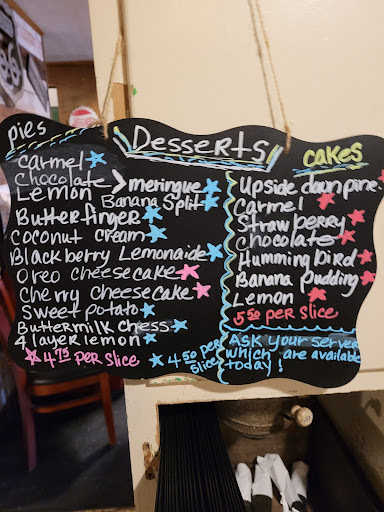 Desserts
pies
carmel
chocolate
Lemon > meringue
Banana Split
Butterfinger
Coconut cream
Blackberry Lemonaide
Oreo cheesecake
Cherry cheesecake
Sweet potato
Buttermilk chess
4 layer lemon
4.75 per slice
4.50 per
slice
cakes
Upside down pine
carmel
Strawberry
chocolate
Hummingbird
Banana pudding
Lemon
5.50 per slice
Ask your server
which are available
today!